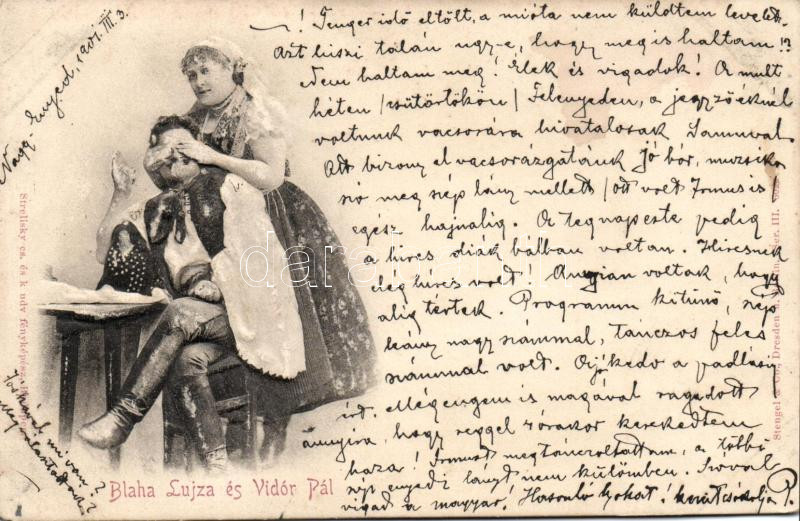 Nagy-Enyed, 1901. III. 3.
! Tenger idő eltölt, a mióta nem küldtem levelet.
Azt hiszi talán ugy-e, hogy meg is haltam!?
Nem haltam meg! Élek és vigadok! A mult
héten (csütörtökön) Felenyeden, a jegyzőéknél
voltunk vacsorára hivatalosak
Ott bizony elvacsorázgatánk jó bor, muzsika
szó meg szép lány mellett (ott volt Irmus is
egész hajnalig. A tegnapeste pedig
a hires diák bálban voltam. Hiresnek
elég hires volt! Annyian voltak, hogy
alig fértek. Programm kitünő, szép
leány nagy számmal, tánczos feles
számmal volt. a padlásig
ért. Még engem is magával ragadott
annyira, hogy reggel órakor kerekedtem
haza! Irmust megtánczoltattam, a többi
szép enyedi lányt nem külömben. Szóval
vigad a magyar! Hasonló jókat! kezeit csókolja P.
mi van?
Blaha Lujza és Vidór Pál
Strelisky cs. és k. udv. fényképész
Stengel & Co., Dresden
darabanth